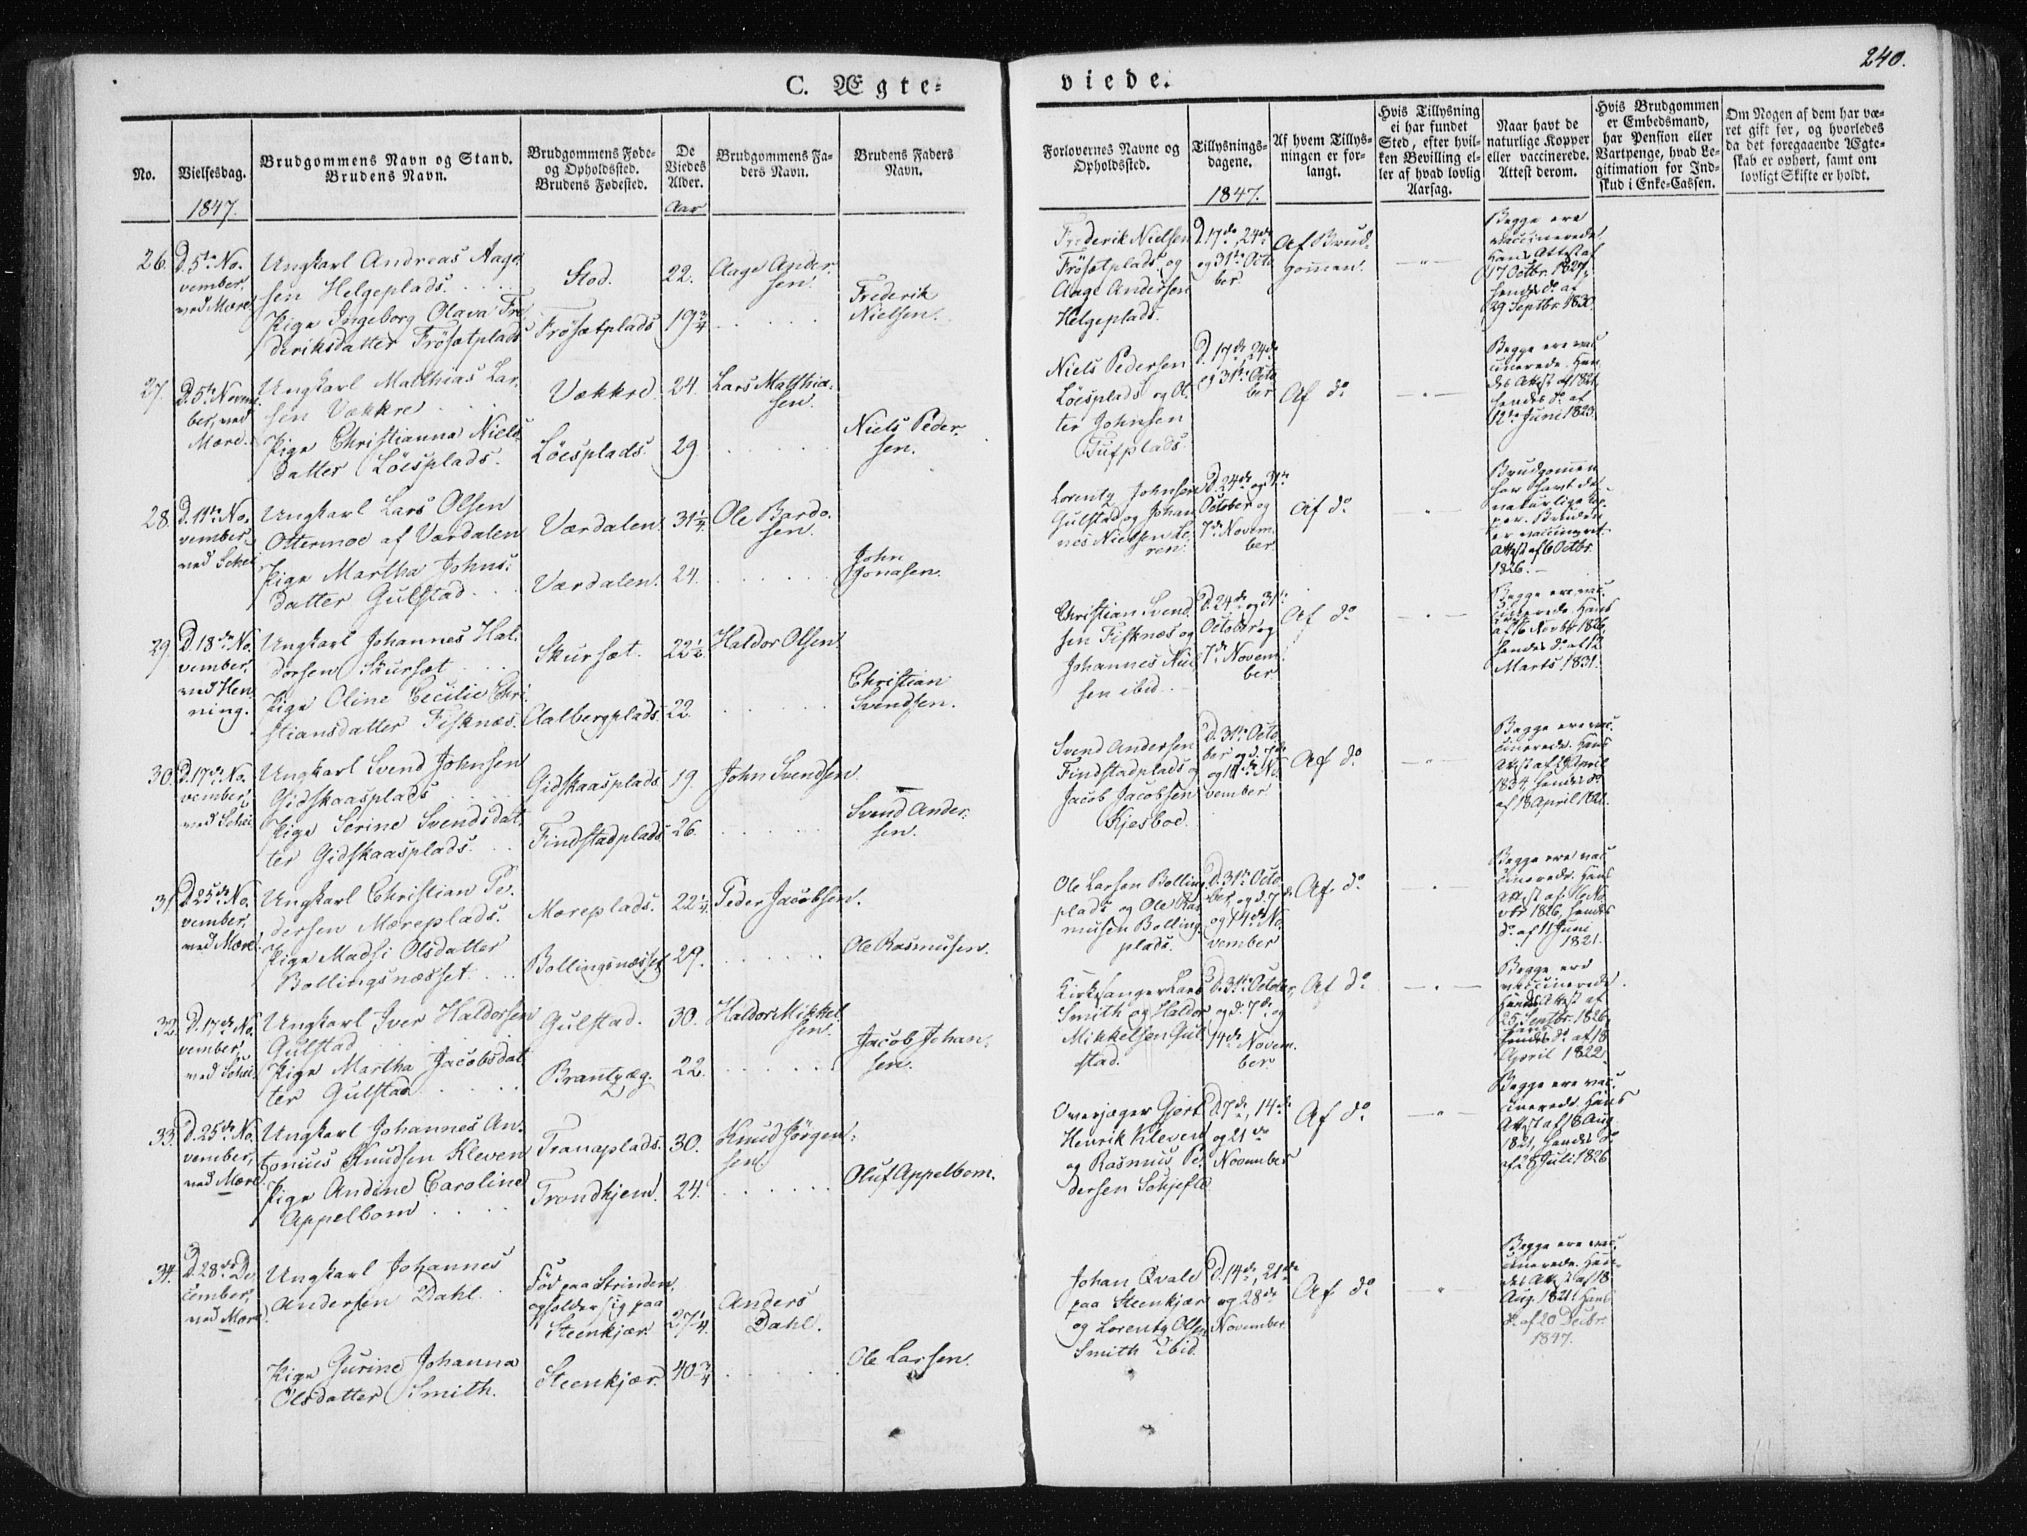 240.
C. Ægte-
viede.
No.
Vielsesdag.
Brudgommens Navn og Stand.
Brudens Navn.
Brudgommens Føde-
og Opholdssted.
Brudens Fødested.
De
Viedes
Alder.
Brudgommens Fa-
ders Navn.
Brudens Faders
Navn.
Forlovernes Navne og
Opholdssted.
Tillysnings-
dagene.
Af hvem Tillys-
ningen er for-
langt.
Hvis Tillysning
ei har fundet
Sted, efter hvil-
ken Bevilling el-
ler af hvad lovlig
Aarsag.
Naar havt de
naturlige Kopper
eller vaccinerede.
Attest derom.
Hvis Brudgommen
er Embedsmand,
har Pension eller
Vartpenge, hvad Le-
gitimation for Ind-
skud i Enke-Cassen.
Om Nogen af dem har væ-
ret gift før, og hvorledes
da det foregaaende Ægte-
skab er ophort, samt om
lovligt Skifte er holdt.
1847.
Aar
1847.
26.
D. 5te No-
vember,
ved Mære.
Ungkarl Andreas Aage-
sen Helgeplads
Pige Ingeborg Olava Fre-
deriksdatter Frösetplads
Stod.
Frösetplads
22.
19 3/4
Aage Ander-
sen.
Frederik
Nielsen.
Frederik Nielsen
Frösetplads og
Aage Andersen
Helgeplads.
D. 17de, 24de
og 31te Octo-
ber.
Af Brud-
gommen.
Begge ere
vaccinerede,
Hans Attest af
17 Octbr. 1827,
hendes do. af
29 Septbr. 1830.
27.
D. 5te Novem-
ber, ved
Mære.
Ungkarl Matthias Lar-
sen Vækkre
Pige Christianna Niels-
datter Löesplads.
Vækkre.
Löesplads.
24.
29
Lars Matthia-
sen.
Niels Peder-
sen.
Niels Pedersen
Löesplads og
ter Johnsen
Tufplads.
D. 17de, 24de
og 31te Octo-
ber
Af do.
Begge ere vac-
cinerede. Hen-
des Attest af 1821,
hendes do. af
12te Juni 1823.
28.
D. 11te No-
vember,
ved Schei
Ungkarl Lars Olsen
Ottermoe af Værdalen
Pige Martha Johns-
datter Gulstad
Værdalen.
Værdalen.
31 1/4
24.
Ole Bardo-
sen.
John
Jonasen.
Lorentz Johnsen
Gulstad og Johan-
nes Nielsen Le-
ren.
D. 24de og 31te
October og
7de Novem-
ber
Af do.
Brudgommen
har havt de
naturlige Kop-
per. Bruden
er vaccineret.
Attest af 6 Octbr.
1826.
29.
D. 18de No-
vember,
ved Hen-
ning.
Ungkarl Johannes Hal-
dorsen Skurset
Pige Oline Cecilie Chri-
stiansdatter Fisknæs.
Skurset.
Aalbergplads.
22 1/2
22.
Haldor Olsen.
Christian
Svendsen.
Christian Svend-
sen Fisknæs og
Johannes Niel-
sen ibid.
D. 24de og 31te
October og
7de Novem-
ber
Af do.
Begge ere vac-
cinerede. Hans
af 16 Novbr. 1826,
hendes do. af 12
Marts 1831.
30.
D. 17de No-
vember,
ved Schei
Ungkarl Svend Johnsen
Gidskaasplads
Pige Serine Svendsdat-
ter Gidskaasplads.
Gidskaasplads
Findstadplads
19.
26.
John Svendsen.
Svend Ander-
sen.
Svend Andersen
Findstadplads og
Jacob Jacobsen
Kjesboe.
D. 31te Octo-
ber og d. 7de
og 14de No-
vember.
Af do.
Begge ere vac-
cinerede. Hans
Attest af April
1834, hendes do.
af 18 April 1821.
31.
D. 25de No-
vember,
ved Mære.
Ungkarl Christian Pe-
dersen Mæreplads.
Pige Madsi Olsdatter
Bollingsnæsset.
Mæreplads.
Bollingsnæsset
22 1/4
29.
Peder Jacobsen.
Ole Rasmusen.
Ole Larsen Bolling-
plads og Ole Ras-
musen Bolling-
plads.
D. 31te Octo-
ber og d. 7de
og 14de No-
vember
Af do.
Begge ere vac-
cinerede. Hans
Attest af 16 No-
vbr 1826, hendes
do. af 11 Juni
1821.
32.
D. 17de No-
vember,
ved Schei.
Ungkarl Iver Haldorsen
Gulstad
Pige Martha Jacobsdat-
ter Gulstad
Gulstad.
Brantzæg.
30.
22.
Haldor Mikkel-
sen.
Jacob Johan-
sen.
Kirkesanger Lars
Smith og Haldor
Mikkelsen Gul-
stad.
D. 31te October,
og d. 7de og
14de Novem-
ber
Af do.
Begge ere
vaccinerede.
Attest af
25 Septbr. 1826,
do. af 18
April 1822.
33.
D. 25de No-
vember,
ved Mære
Ungkarl Johannes An-
tonius Knudsen Kleven
Pige Andine Caroline
Appelbom
Tranaplads.
Trondhjem.
30.
24.
Knud Jörgen-
sen
Oluf Appelbom.
Overjæger Gjert
Henrik Kleven
og Rasmus Pe-
dersen
D. 7de, 14de
og 21de
November
Af do.
Begge ere vac-
cinerede. Hans
Attest af 18 Aug.
1821, hendes do.
af 28 Juli 1826
34.
D. 28de De-
cember,
ved Mære.
Ungkarl Johannes
Andersen Dahl.
Pige Gurine Johanna
Olsdatter Smith.
Föd paa Strinden,
opholder sig paa
Steenkjær.
Steenkjær.
27 1/4.
40 3/4
Anders
Dahl.
Ole Larsen.
Johan Qvale
paa Steenkjær
og Lorentz Olsen
Smith ibid.
D. 14de, 21de
og 28de
November.
Af do.
Begge ere vac-
cinerede. Hen-
des Attest af 18
Aug. 1821. Hans
do. af 20 Decbr.
1847.